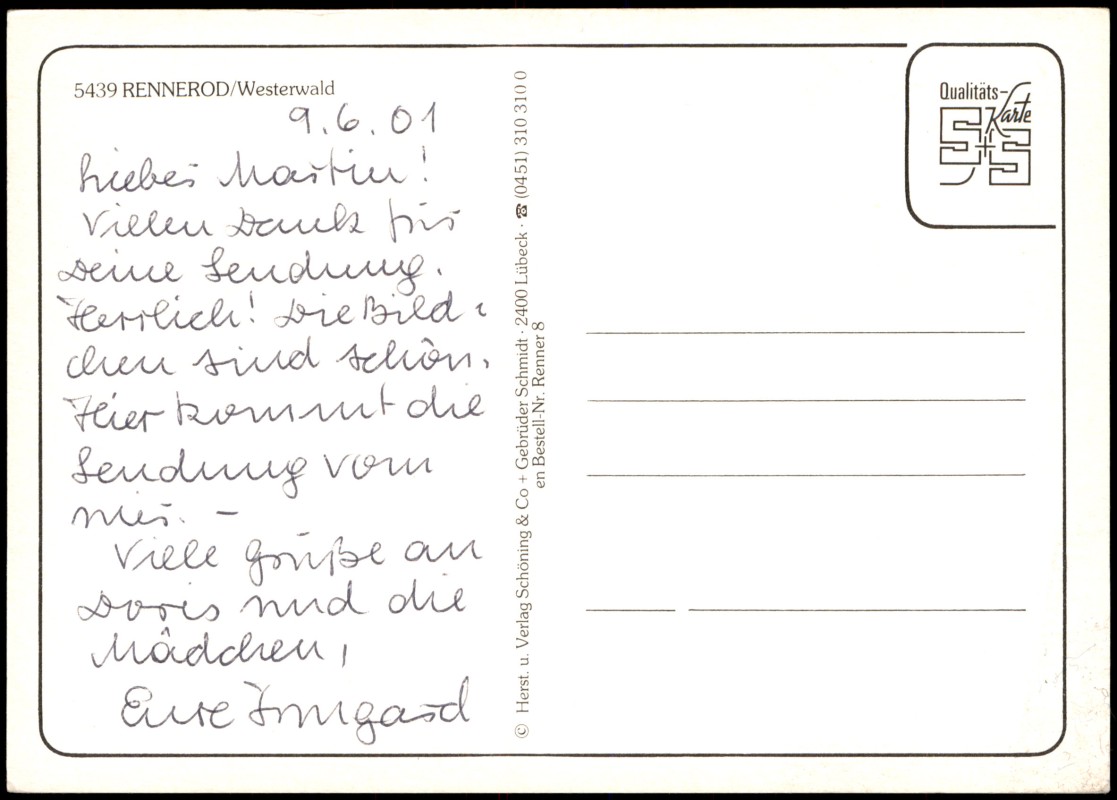 5439 RENNEROD/Westerwald
9.6.01
Lieber Martin!
Vielen Dank für
Deine Sendung.
Herrlich! Die Bild-
chen sind schön.
Hier kommt die
Sendung vom
mir. –
Viele Grüße an
Doris und die
Mädchen,
Eure Irmgard
© Herst. u. Verlag Schöning & Co + Gebrüder Schmidt · 2400 Lübeck · ☎ (0451) 310 310 0
en Bestell-Nr. Renner 8
Qualitäts-
Karte
S+S